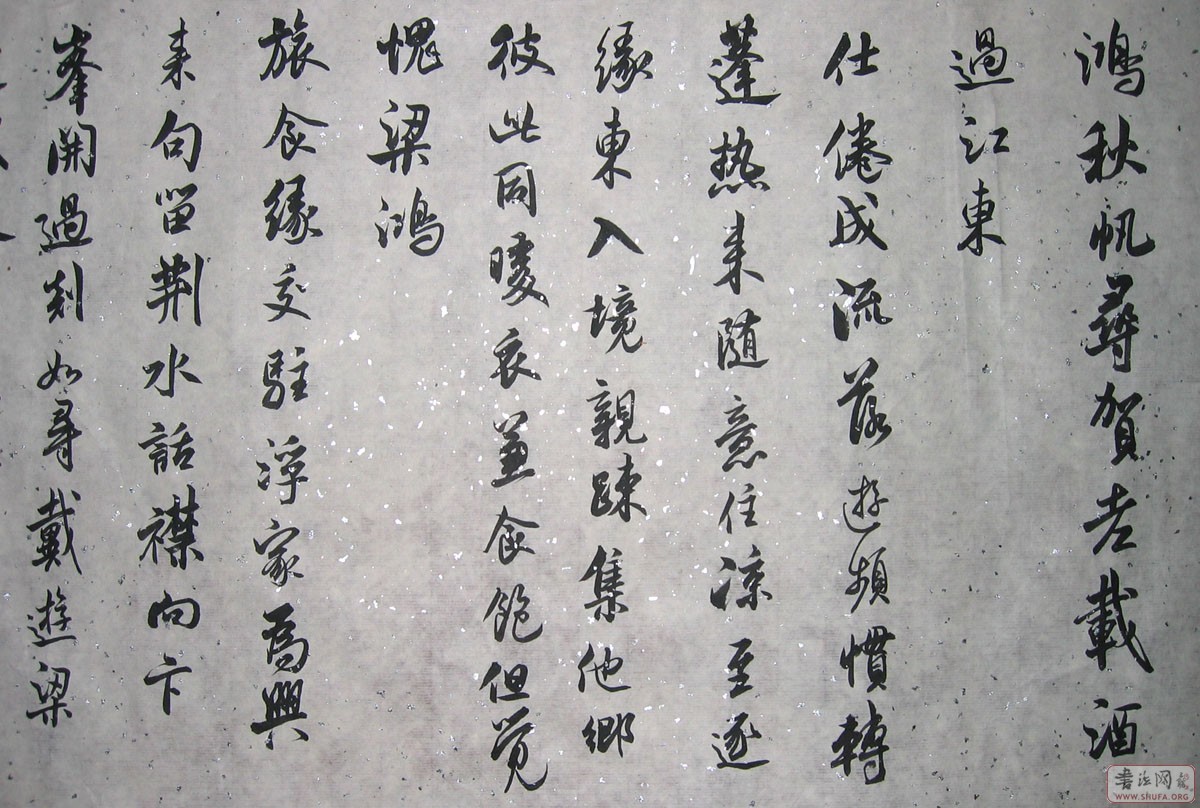 鴻秋帆尋賀老載酒
過江東
仕倦成流落遊頻慣轉
蓬热来随意住凉至逐
緣東入境親踈集他鄉
彼此同暖衣兼食飽但觉
愧梁鴻
旅食緣交駐浮家為興
来句留荆水話襟向卞
峯開過剡如尋戴遊梁
WWW.SHUFA.ORG